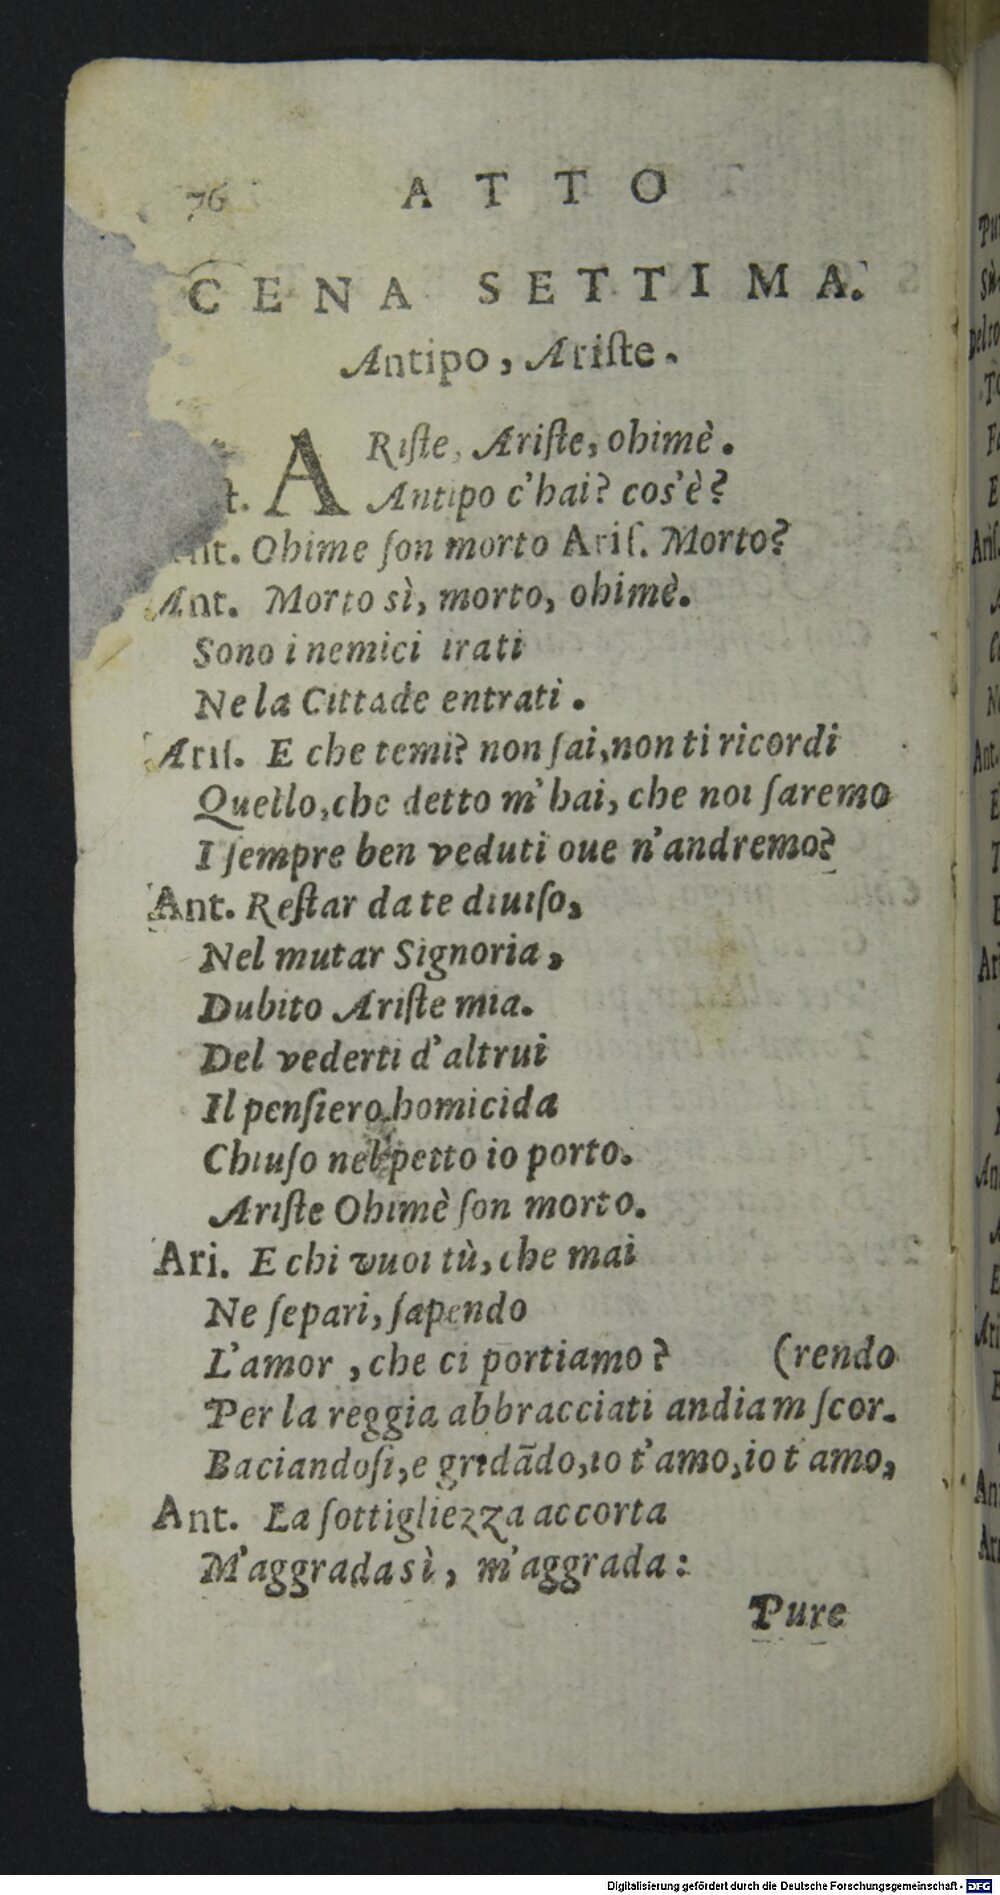 76 ATTO
CENA SETTIMA.
Antipo, Ariſte.
ARiſte, Ariſte, ohimè.
t. Antipo c'hai? cos'è?
nt. Ohime ſon morto Ariſ. Morto?
Ant. Morto sì, morto, ohimè.
Sono i nemici irati
Ne la Cittade entrati.
Ariſ. E che temi? non ſai, non ti ricordi
Quello, che detto m'hai, che noi ſaremo
I ſempre ben veduti oue n'andremo?
Ant. Reſtar da te diuiſo,
Nel mutar Signoria,
Dubito Ariſte mia.
Del vederti d'altrui
Il penſiero homicida
Chiuſo nel petto io porto.
Ariſte Ohimè ſon morto.
Ari. E chi vuoi tù, che mai
Ne ſepari, ſapendo
L'amor, che ci portiamo? (rendo
Per la reggia abbracciati andiam ſcor-
Baciandoſi, e gridãdo, io t'amo, io t'amo,
Ant. La ſottigliezza accorta
M'aggrada sì, m'aggrada:
Pure
Digitalisierung gefördert durch die Deutsche Forschungsgemeinschaft - DFG